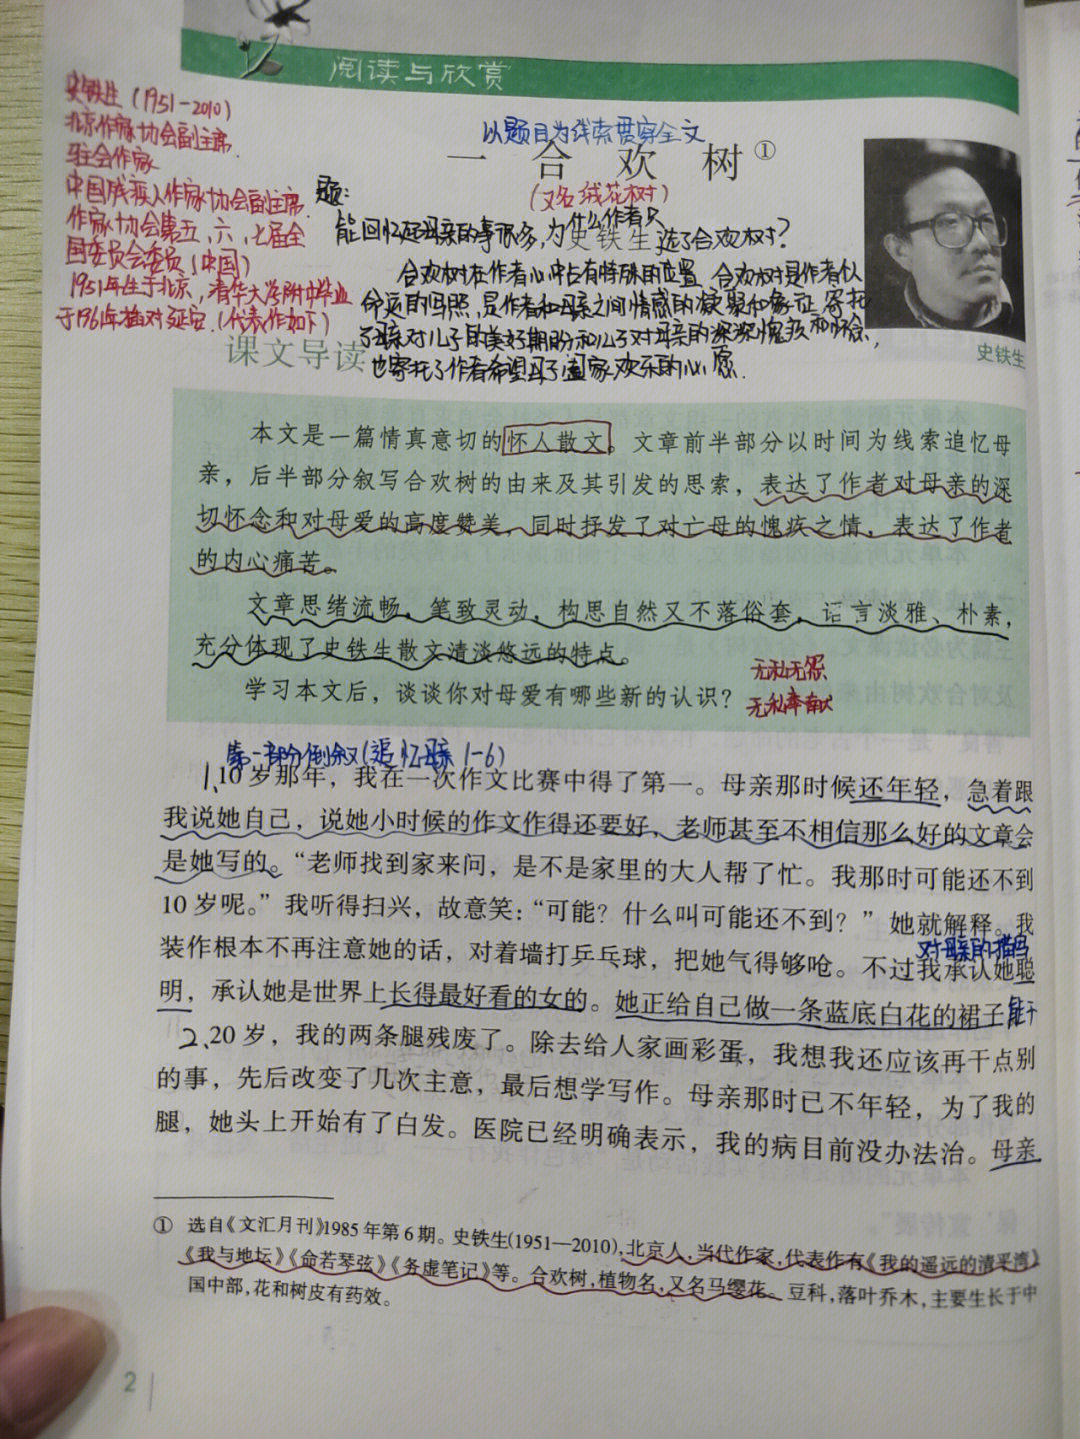 阅读与欣赏
史铁生(1951-2010)
北京作家协会副主席.
驻会作家
中国残疾人作家协会副主席.
作家协会第五、六、七届全
国委员会委员(中国)
1951年生于北京,清华大学附中毕业
于1961年插对延安.(代表作如下)
以题目为线索贯穿全文
一 合欢树①
(又名绒花树)
题:
能回忆起母亲的事很多,为什么作者只选了合欢树?
史铁生
合欢树在作者心中占有特殊的位置 合欢树是作者个人
命运的写照,是作者和母亲之间情感的凝聚和象征.寄托
了母亲对儿子的美好期盼和儿子对母亲的深深愧疚和怀念,
也寄托了作者希望母子阖家欢乐的心愿.
史铁生
课文导读
本文是一篇情真意切的怀人散文。文章前半部分以时间为线索追忆母
亲,后半部分叙写合欢树的由来及其引发的思索,表达了作者对母亲的深
切怀念和对母爱的高度赞美,同时抒发了对亡母的愧疚之情,表达了作者
的内心痛苦。
文章思绪流畅,笔致灵动,构思自然又不落俗套,语言淡雅、朴素,
充分体现了史铁生散文清淡悠远的特点。
学习本文后,谈谈你对母爱有哪些新的认识?
无私无怨
无私奉献
第一部分倒叙(追忆母亲 1-6)
1、10岁那年,我在一次作文比赛中得了第一。母亲那时候还年轻,急着跟
我说她自己,说她小时候的作文作得还要好,老师甚至不相信那么好的文章会
是她写的。“老师找到家来问,是不是家里的大人帮了忙。我那时可能还不到
10岁呢。”我听得扫兴,故意笑:“可能?什么叫可能还不到?”她就解释。我
装作根本不再注意她的话,对着墙打乒乓球,把她气得够呛。不过我承认她聪
对母亲的描写
明,承认她是世界上长得最好看的女的。她正给自己做一条蓝底白花的裙子。
能干
2、20岁,我的两条腿残废了。除去给人家画彩蛋,我想我还应该再干点别
的事,先后改变了几次主意,最后想学写作。母亲那时已不年轻,为了我的
腿,她头上开始有了白发。医院已经明确表示,我的病目前没办法治。母亲
① 选自《文汇月刊》1985年第6期。史铁生(1951—2010),北京人,当代作家,代表作有《我的遥远的清平湾》
《我与地坛》《命若琴弦》《务虚笔记》等。合欢树,植物名,又名马缨花。豆科,落叶乔木,主要生长于中
国中部,花和树皮有药效。
2